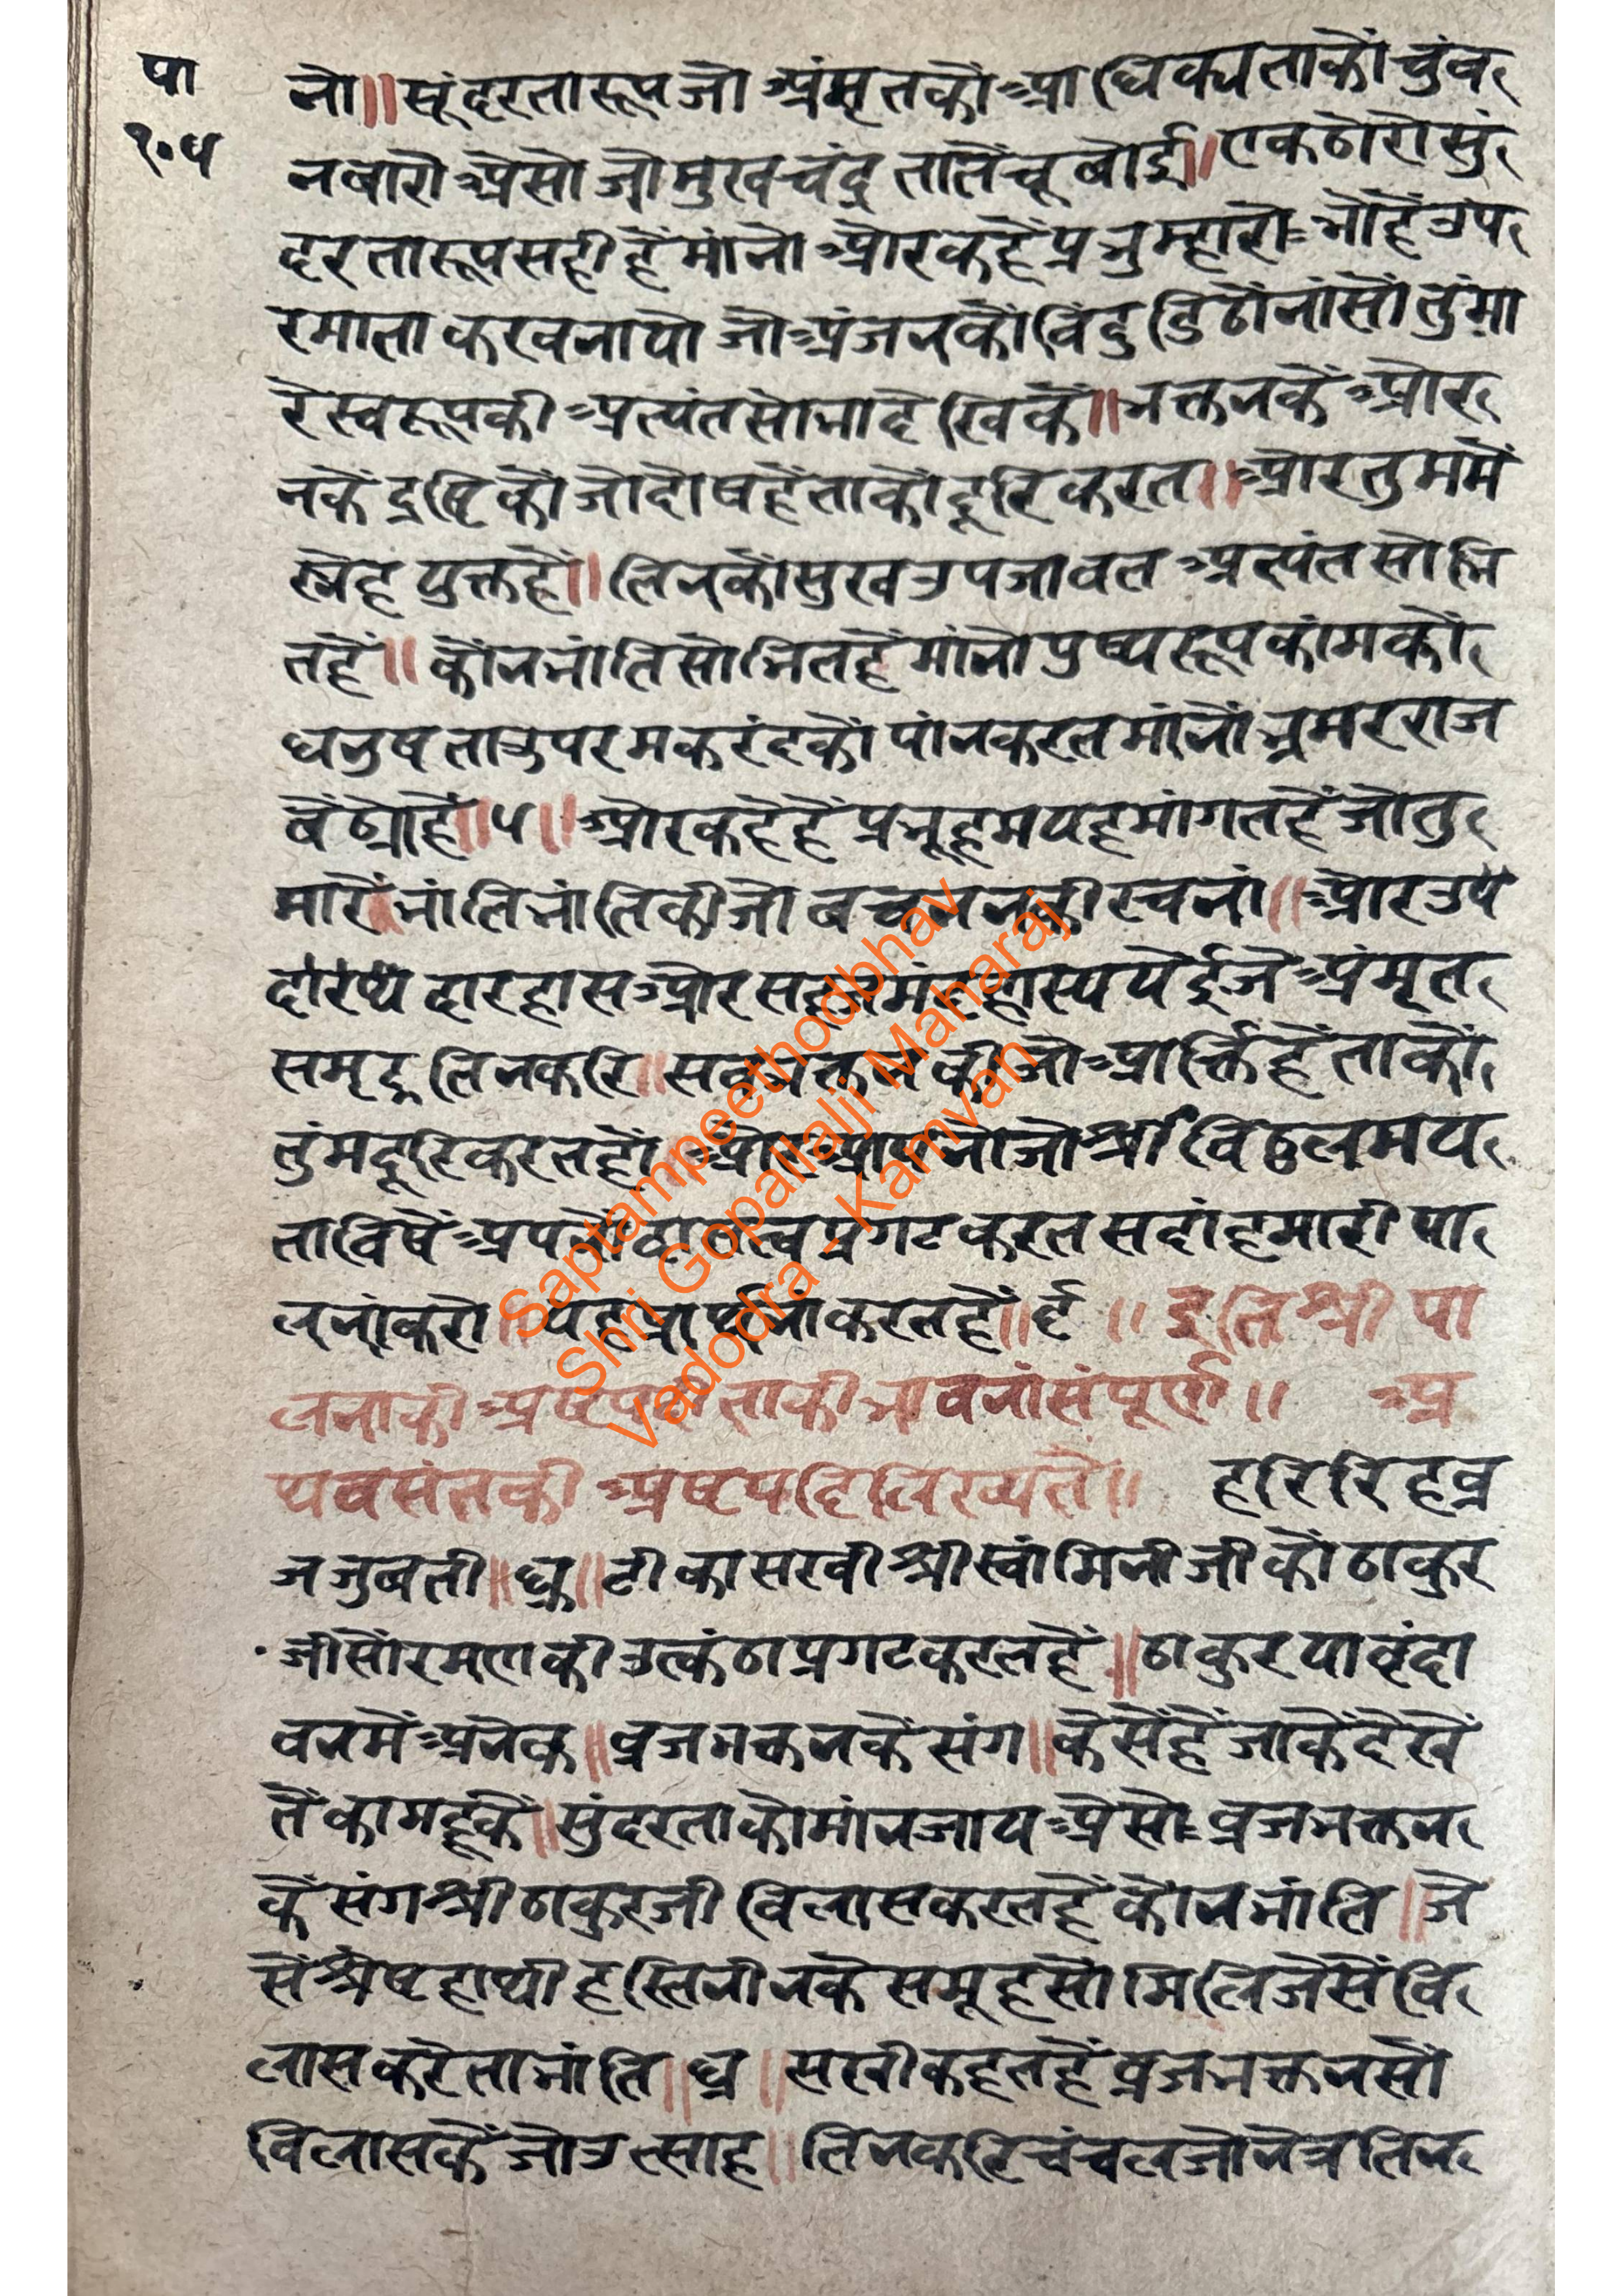 पा
१०५
नो॥ सूंदरतारूप जो अंमृतकौ आधिक्यताकौं चुंब
नबारो अैसो जो मुखचंद्र तातें चूबोई॥ एकठोरो सुं
दरतारूप सही हैं मांनो और कहैं प्रभु म्हारो भोंहैं उप
रमाता करवनायो जो अंजनकौं विंदु डिठोंनां सों तुंमा
रे स्वरूपकी अत्यंत सोभा देखिकें॥ भक्तनकें और
नकें द्रष्टिकौं जो दोषहैं ताकौं दूरि करत॥ और तुममें
स्नेह युक्तहैं॥ तिनकौं सुख उपजावत अत्यंत सोभि
तहैं॥ कौंन भांति सोभितहैं मांनो पुष्परूप कांमकौ
धनुष ता उपर मकरंदकौं पांन करत मांनों भ्रमरराज
बैंठोहैं॥५॥ और कहेहैं प्रभू हम यह मांगतहैं जो तु
मारें भांति भांति की जो बचननकी रचनां॥ और उप
दारष्य दारहास और सहज मंदहास्य येई जे अंमृत
समूद्र तिन करि॥ सब भक्तनकी जो आर्त्ति हैं ताकौं
तुंम दूरि करतहौं॥ और आपनो जो श्री विठ्ठलमय
ता विषें अपनों दासत्व प्रगट करत सदां हमारी पा
लनां करो॥ यह प्रार्थनां करतहैं॥६॥ इति श्री पा
लनाकी अष्टपदी ताकी भावनां संपूर्ण॥ अ
थ वसंतकी अष्टपदि लिख्यते॥ हरिरिहव्र
जजुबती॥ध्रु॥ टीका सखी श्री स्वांमिनीजीकौं ठाकुर
जीसौं रमणकी उत्कंठा प्रगट करतहैं॥ ठाकुर या वृंदा
वनमें अनेक॥ व्रजभक्तनकें संग॥ कैसेंहैं जाकें देखें
तें कामहूकें॥ सुंदरताकौ मांन जाय अैसो व्रजभक्तन
कें संग श्री ठाकुरजी विलास करतहैं कौंन भांति॥ जै
सें श्रेष्ट हाथी हस्तिनीनके समूहसों मिलि जैसें वि
लास करे ता भांति॥ध्रु॥ सखी कहतहैं व्रजभक्तनसों
विलासकें जो उत्साह॥ तिन करि चंचल जो नेत्र तिन
Saptampeethodbhav
Shri Gopallalji Maharaj
Vadodra - Kamvan